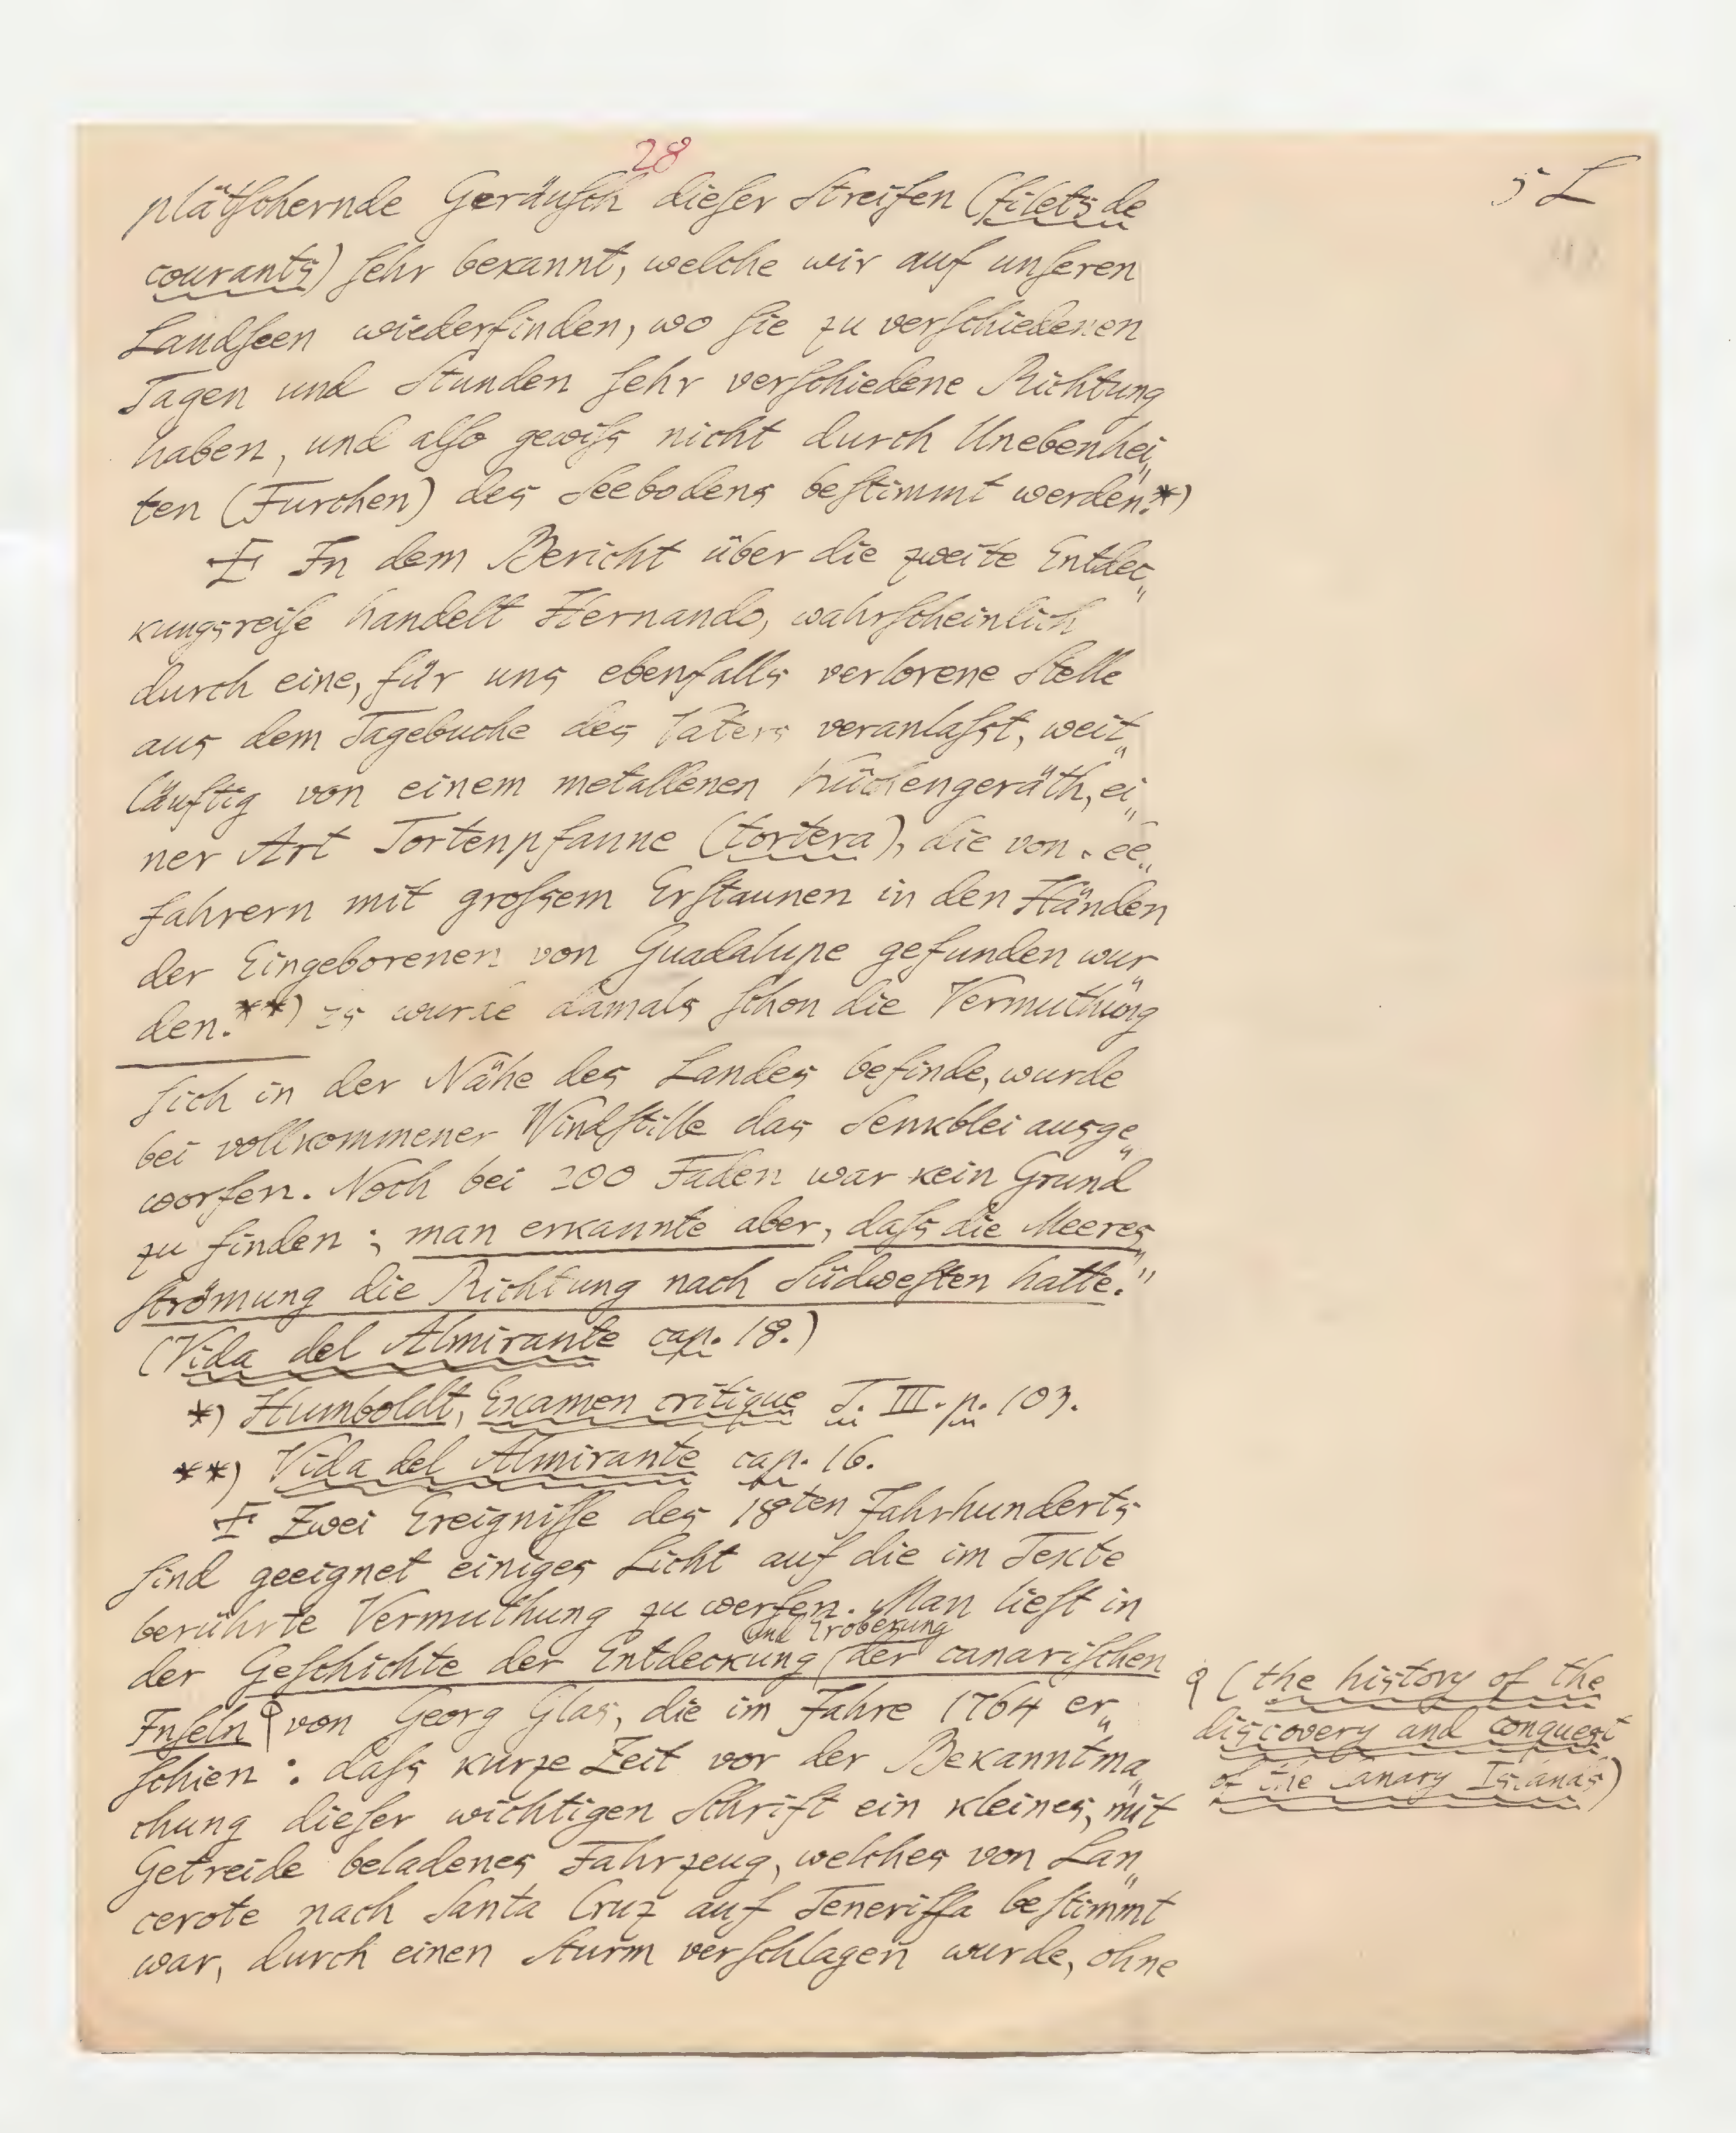 28
5 L
plätſchernde Geräuſch dieſer Streifen (filets de
courants) ſehr bekannt, welche wir auf unſeren
Landſeen wiederfinden, wo ſie zu verſchiedenen
Tagen und Stunden ſehr verſchiedene Richtung
haben, und alſo gewiſs nicht durch Unebenhei„
ten (Furchen) des Seebodens beſtimmt werden.*)
E In dem Bericht über die zweite Entdec„
kungsreiſe handelt Hernando, wahrſcheinlich
durch eine, für uns ebenfalls verlorene Stelle
aus dem Tagebuche des Vaters veranlaſst, weit„
läuftig von einem metallenen Küchengeräth, ei„
ner Art Tortenpfanne (tortera), die von See„
fahrern mit groſsem Erſtaunen in den Händen
der Eingeborenen von Guadalupe gefunden wur„
den.**) Es wurde damals ſchon die Vermuthung
ſich in der Nähe des Landes befinde, wurde
bei vollkommener Windſtille das Senkblei ausge„
worfen. Noch bei 200 Faden war kein Grund
zu finden ; man erkannte aber, daſs die Meeres„
ſtrömung die Richtung nach Südweſten hatte."
(Vida del Almirante cap. 18.)
*) Humboldt, Examen critique T. III. p. 103.
**) Vida del Almirante cap. 16.
E Zwei Ereigniſſe des 18ten Jahrhunderts
ſind geeignet einiges Licht auf die im Texte
berührte Vermuthung zu werfen. Man lieſt in
und Eroberung
der Geſchichte der Entdeckung der canariſchen
Inſeln von Georg Glas, die im Jahre 1764 er„
ſchien : daſs kurze Zeit vor der Bekanntma„
chung dieſer wichtigen Schrift ein kleines, mit
Getreide beladenes Fahrzeug, welches von Lan„
cerote nach Santa Cruz auf Teneriffa beſtimmt
war, durch einen Sturm verſchlagen wurde, ohne
(the history of the
discovery and conquest
of the Canary Islands)